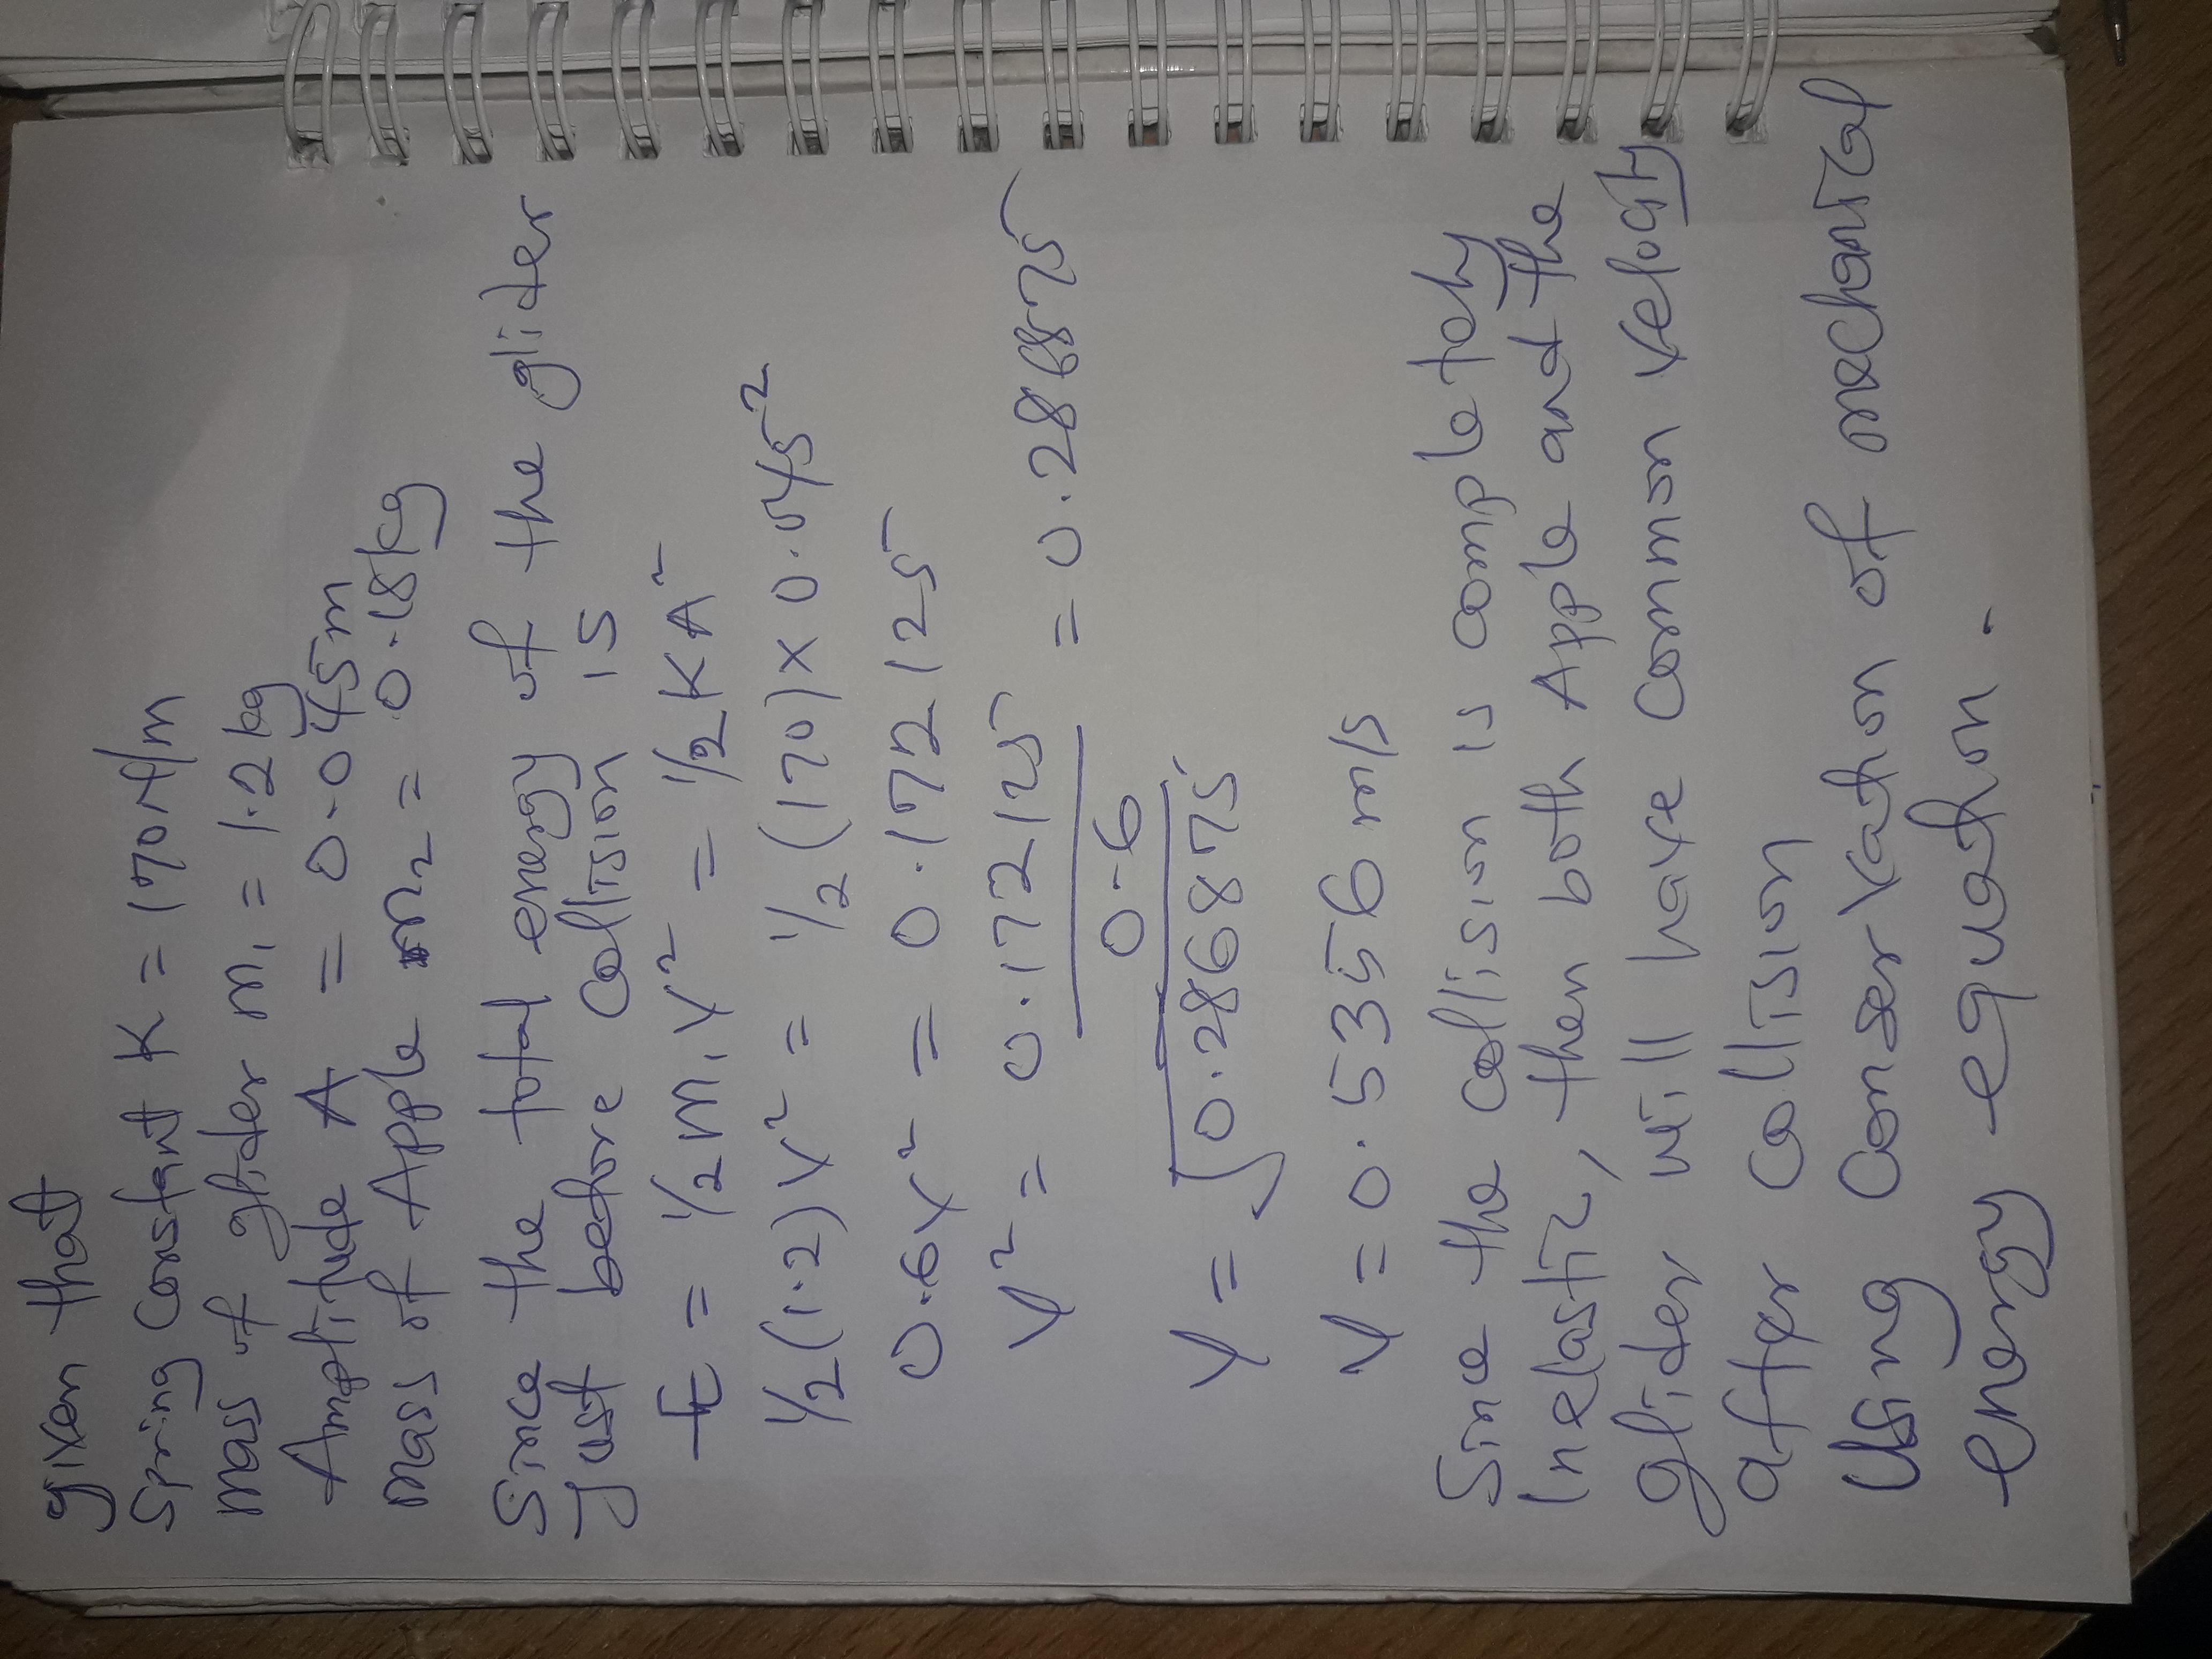 given that
Spring Constant K = 170 N/m
mass of glider m₁ = 1.2 kg
Amplitude A = 0.045m
mass of Apple m₂ = 0.18kg
Since the total energy of the glider
just before collision is
E = 1/2 m₁v² = 1/2 KA²
1/2 (1.2) v² = 1/2 (170) x 0.045²
0.6v² = 0.172125
v² = 0.172125 / 0.6 = 0.286875
v = √0.286875
v = 0.5356 m/s
Since the collision is completely
Inelastic, then both Apple and the
glider will have common velocity
after collision
Using Conservation of mechanical
energy equation.